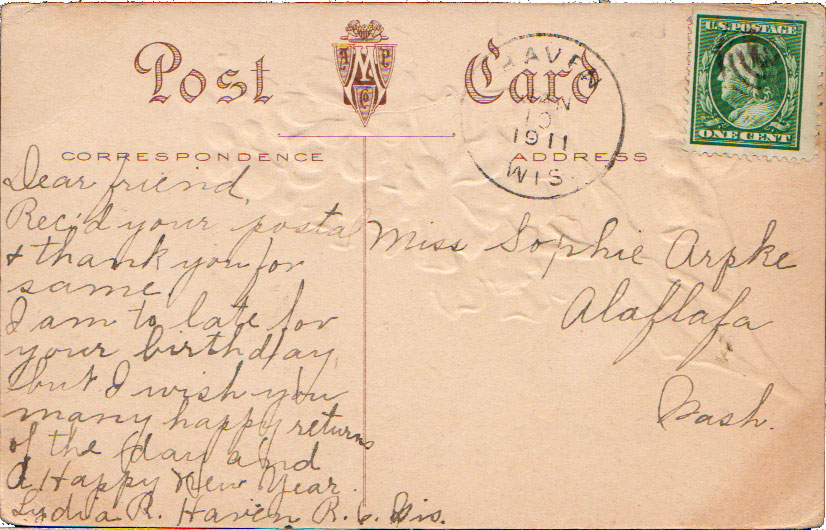 Post Card
A M P C
U.S. POSTAGE
ONE CENT
HAVEN
JAN
10
1911
WIS.
CORRESPONDENCE
ADDRESS
Dear friend,
Rec'd your postal
& thank you for
same.
I am to late for
your birthday,
but I wish you
many happy returns
of the day and
A Happy New Year.
Lydia R. Haven R. 6. Wis.
Miss Sophie Arpke
Alaflafa
Wash.